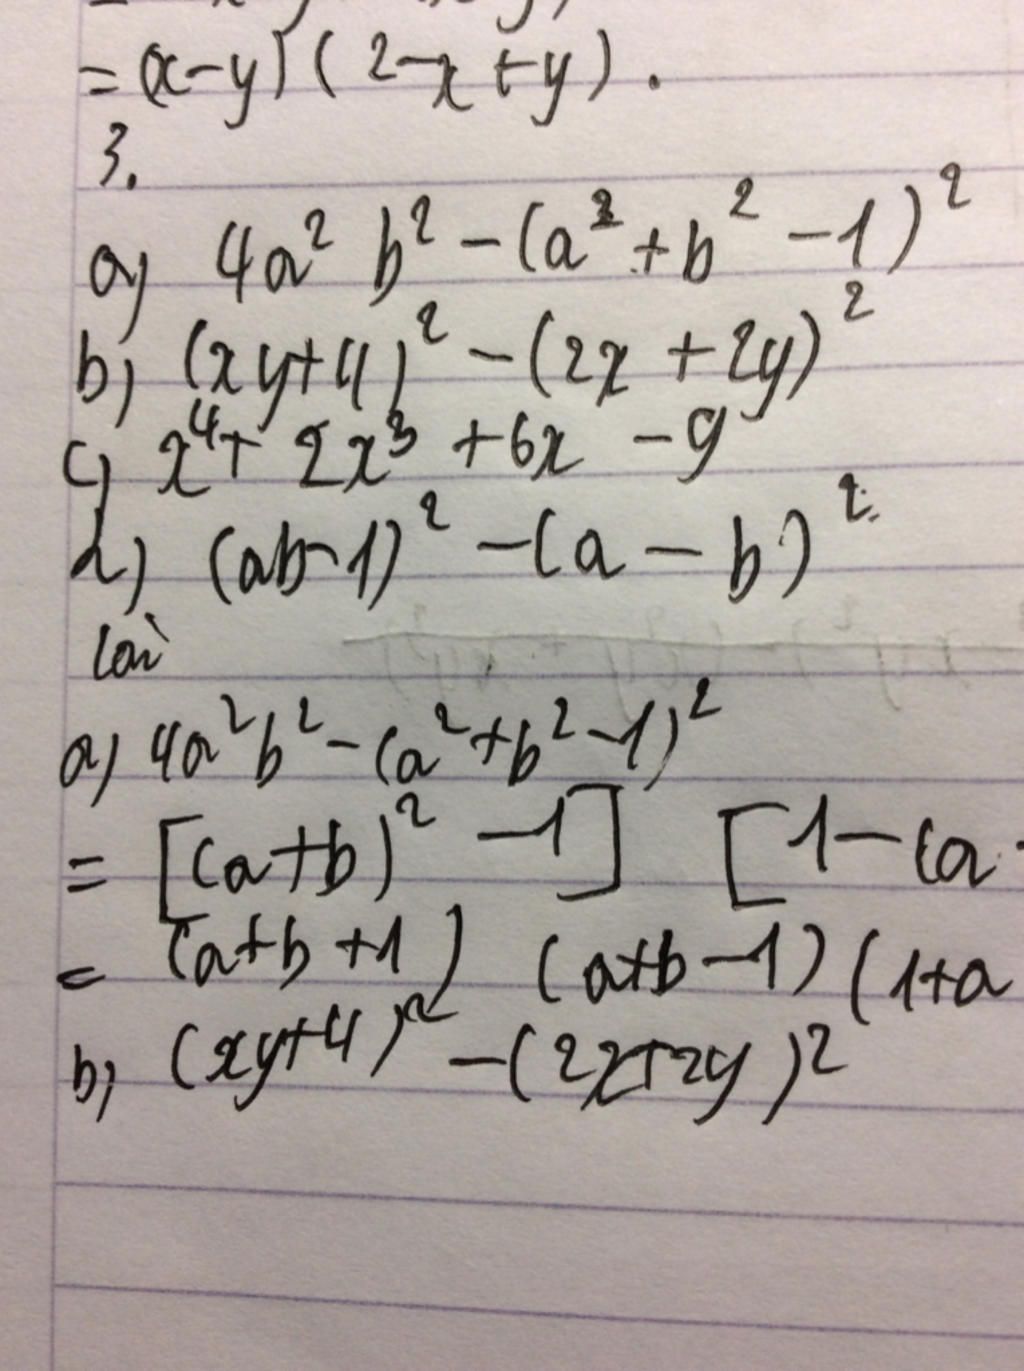 = (x-y) (2-x+y).
3.
a) 4a² b² - (a² + b² - 1)²
b) (xy+4)² - (2x + 2y)²
c) x⁴ + 2x³ + 6x - 9
d) (ab-1)² - (a - b)²
a) 4a²b² - (a²+b²-1)²
= [(a+b)² - 1] [1 - (a
= (a+b+1) (a+b-1) (1+a
b) (xy+4)² - (2x+2y)²